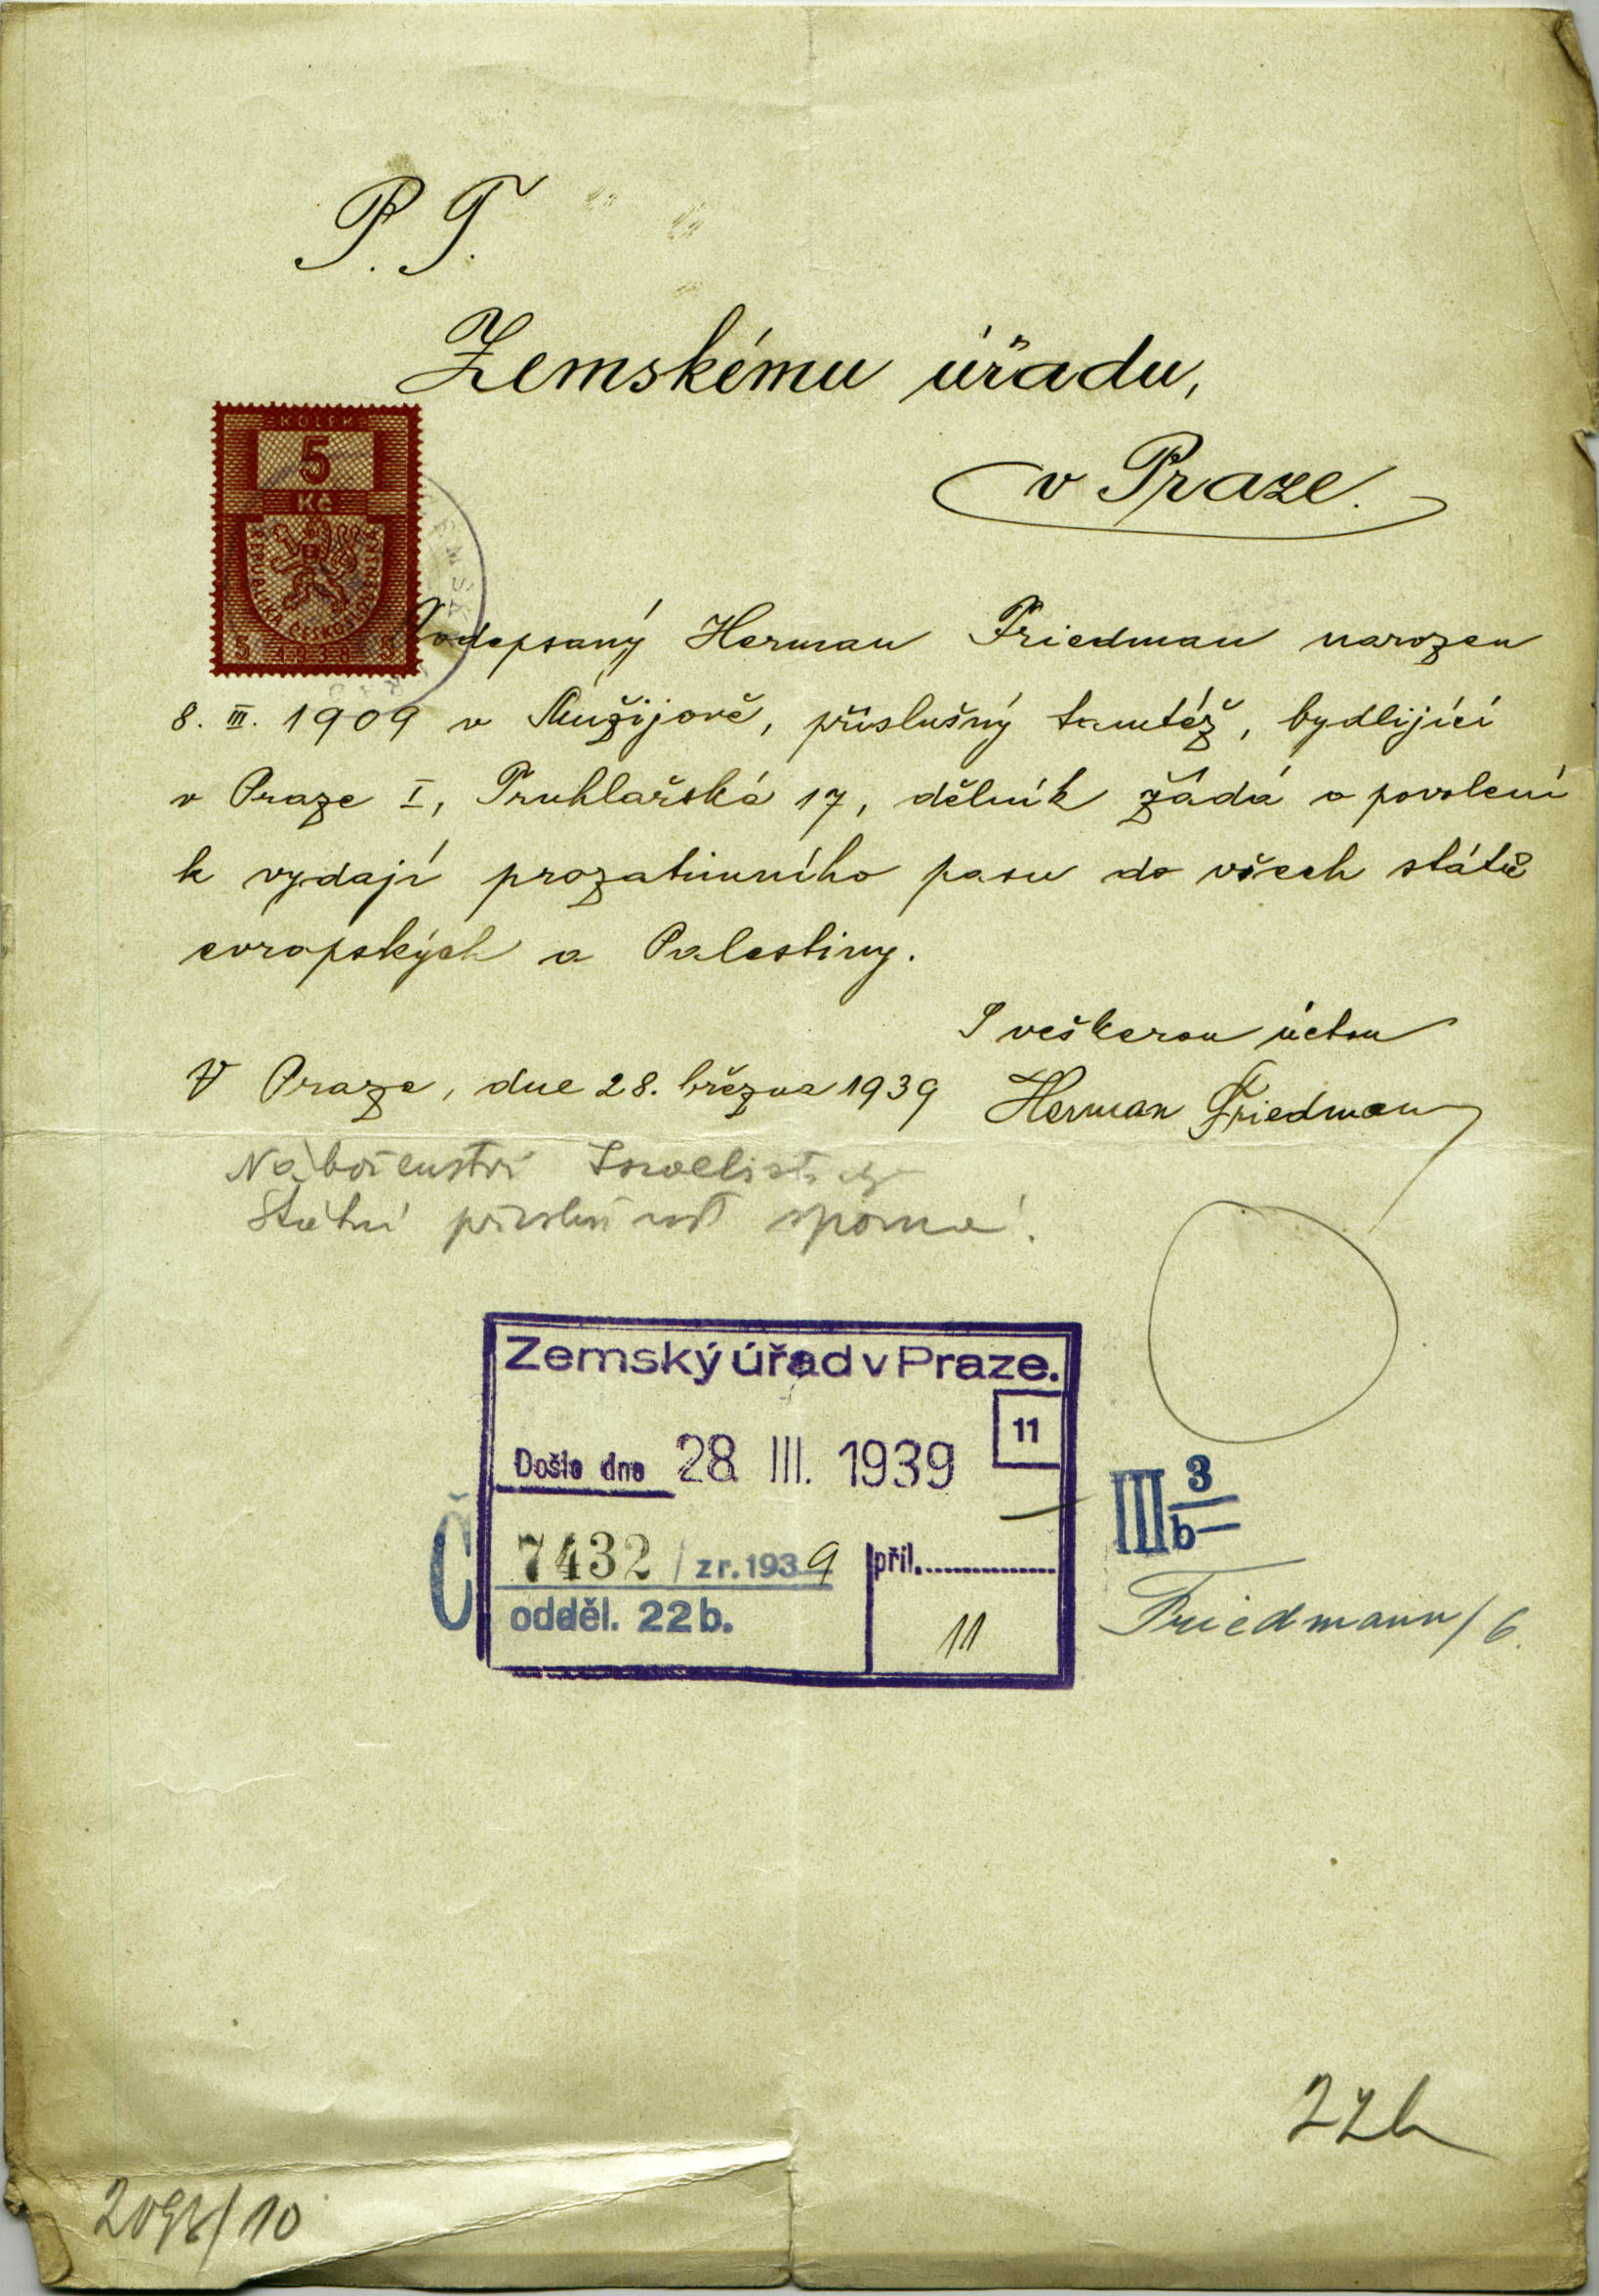 P. T.
Zemskému úřadu,
v Praze.
KOLEK
5
Kč
REPUBLIKA ČESKOSLOVENSKÁ
5 1938 5
Podepsaný Herman Friedman narozen
8. III. 1909 v Mužijově, příslušný tamtéž, bydlijící
v Praze I, Truhlařská 17, dělník žádá o povolení
k vydají prozatimního pasu do všech států
evropských a Palestiny.
S veškerou úctou
V Praze, dne 28. března 1939 Herman Friedman
Náboženství Israelistské
Státní příslušnost sporná!
Zemský úřad v Praze.
11
Došlo dne 28. III. 1939
Č 7432 / z r. 1939 příl.
odděl. 22b. 11
III 3
b
Friedmann/6.
22b